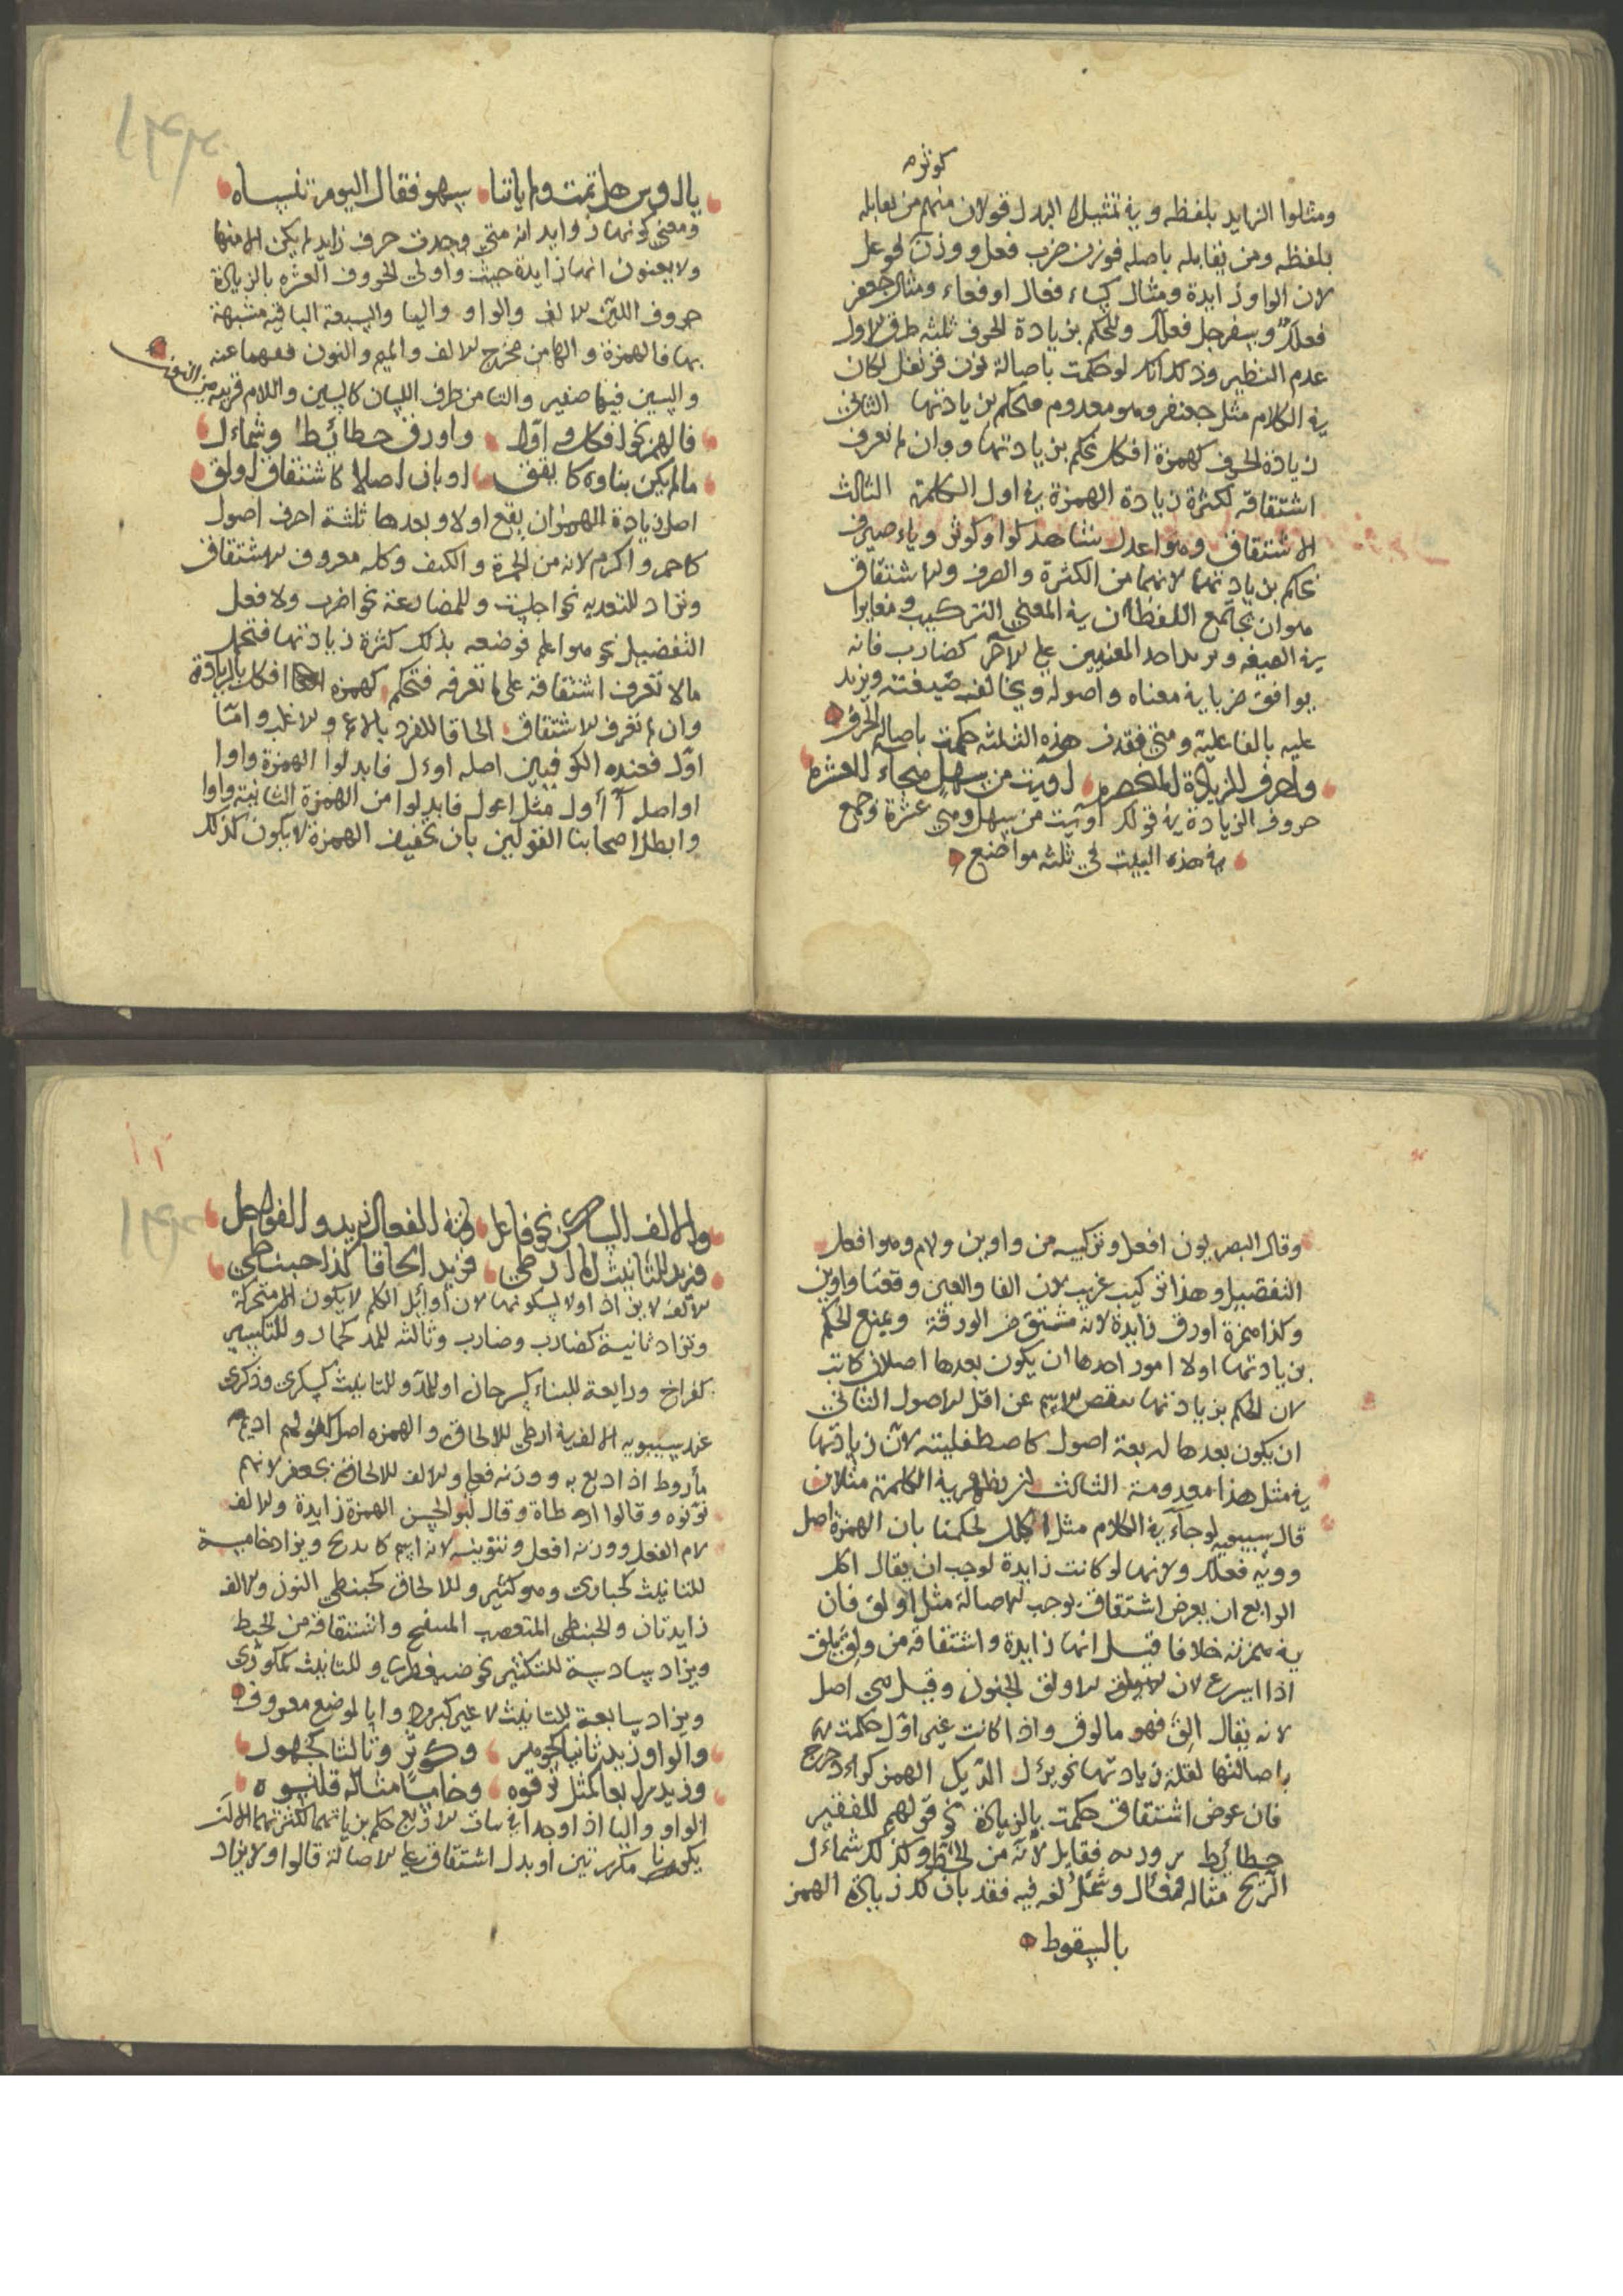 كوثر
ومثلوا الزايد بلفظه وفي تمثيل البدل قولان منهم من يقابله
بلفظه ومن يقابله باصله فوزن ضرب فعل ووزن
لان الواو زايدة ومثال كساء فعال او فعاء ومثال جعفر
فعلل وسفرجل فعلل وللحكم بزيادة الحرف ثلثه طرق الاول
عدم النظير وذلك انك لو حكمت باصالة نون قرنفل لكان
في الكلام مثل جعنفر وهو معدوم فتحكم بزيادتها الثاني
زيادة الحرف كهمزة افكل تحكم بزيادتها وان لم تعرف
اشتقاقه لكثرة زيادة الهمزة في اول الكلمة الثالث
الاشتقاق وهو اعدل شاهد كواو كوثر وياء صيرف
تحكم بزيادتهما لانهما من الكثرة والصرف والاشتقاق
هو ان يجتمع اللفظان في المعنى والتركيب ومغايرا
في الصيغه ويزيد احد المعنيين على الاخر كضارب فانه
يوافق ضربا في معناه واصوله ويخالف صيغته ويزيد
عليه بالفاعلية ومتى فقدت هذه الثلثه حكمت باصاله الحرف
واحرف الزيادة المنحصره اويت من سهل هجاء للعشره
حروف الزيادة في قولك اويت من سهل وهي عشرة وجمع
في هذه البيت في ثلثه مواضع
يا اوس هل نمت ولم ياتنا سهو فقال اليوم تنساه
ومعنى كونها زوايد انه متى وجدت حرف زايد لم يكن الا منها
ولا يعنون انها زايدة حيث واولى الحروف العشره بالزيادة
حروف اللين الالف والواو واليا والسبعة الباقيه مشبهة
بها فالهمزة والها من مخرج الالف والميم والنون فيهما غنه
والسين فيها صفير والتا من طرف اللسان كالسين واللام قريبه من النون
فالهمز نحو افكل و اولا واورق حطائط وشماءل
ما لم يكن بناوه كايقق او بان اصلا كاشتقاق اولق
اصل زيادة الهمز ان يقع اولا وبعدها ثلثة احرف اصول
كاحمر واكرم لانه من الحمرة والكرم وكله معروف الاشتقاق
وتزاد للتعديه نحو اجلست وللمضارعة نحو اضرب ولافعل
التفضيل نحو هو اعلم فوضعه بذلك كثرة زيادتها فتحمل
مالا تعرف اشتقاقه على ما تعرفه فتحكم كهمزه افكل بالزيادة
وان لم تعرف الاشتقاق الحاقا للفرد بالاعم والاغلب واما
اول فعند الكوفيين اصله اوءل فابدلوا الهمزة واوا
او اصله أأول مثل اعول فابدلوا من الهمزة الثانية واوا
وابطل اصحابنا القولين بان تخفيف الهمزة لا يكون كذلك
وقال البصريون افعل وتركيبه من واوين ولام وهو افعل
التفضيل وهذا تركيب غريب لان الفا والعين وقعتا واوين
وكذا همزة اورق زايدة لانه مشتق من الورقة ويمنع الحكم
بزيادتها اولا امور احدها ان يكون بعدها اصلان كاتب
لان الحكم بزيادتها ينقص الاسم عن اقل الاصول الثاني
ان يكون بعدها اربعة اصول كاصطفلينه لان زيادتها
في مثل هذا معدومة الثالث ان يظهر في الكلمة مثلان
قال سيبويه لو جاء في الكلام مثل اكلل لحكمنا بان الهمزة اصل
ووزنه فعلل ولانها لو كانت زايدة لوجب ان يقال اكل
الرابع ان يعرض اشتقاق يوجب الاصالة مثل اولق فان
في همزته خلافا قيل انها زايدة واشتقاقه من ولق يلق
اذا اسرع لان الاولق الجنون وقيل هي اصل
لانه يقال الق فهو مالوق واذا كانت غير اول حكمت
باصالتها لقلة زيادتها نحو برءل الديك الهمز
فان عرض اشتقاق حكمت بالزيادة نحو قولهم للقصير
حطائط لانه من الحط وكذلك شماءل
الريح مثاله فمأال وشمل لغه فيه فقد بان لك زيادة الهمز
بالسقوط
والالف الساكن نحو فاعل وفي الفعال زيد والفواعل
وزيد للتانيث اما ارطى فزيد الحاقا كذا حبنطى
الالف لا يزاد اولا لسكونها لان اوائل الكلم لا يكون الا متحركة
وتزاد ثانية كضارب وضارب وثالثه للمد كحمار وللتكسير
كفراخ ورابعة للبناء كسرحان او للمد وللتانيث كسكرى وذكرى
عند سيبويه الالف في ارطى للالحاق والهمزه اصل لقولهم اديم
مأروط اذا دبغ به ووزنه فعلى والالف للالحاق بجعفر لانهم
نونوه وقالوا ارطاة وقال ابو الحسن الهمزة زايدة والالف
لام الفعل ووزنه افعل وتنوينه لانه اسم ويزاد خامسة
للتانيث كحبارى وهو كثير وللالحاق كحبنطى النون والالف
زايدتان والحبنطى المنتفخ واشتقاقه من الحبط
ويزاد سادسة للتكثير نحو ضبغطرى وللتانيث كمكورى
ويزاد سابعة للتانيث لا غير كبردرايا لموضع معروف
والواو زيد ثانيا كجوهر وكوثر وثالثا كجهور
وزيد رابعا كمثل ترقوه وخامسا مثاله قلنسوه
الواو واليا اذا وجدا في بنات الاربع حكم بزيادتهما لكثرتهما الا ان
يكونا مكررتين او يدل اشتقاق على الاصالة قالوا ولا يزاد